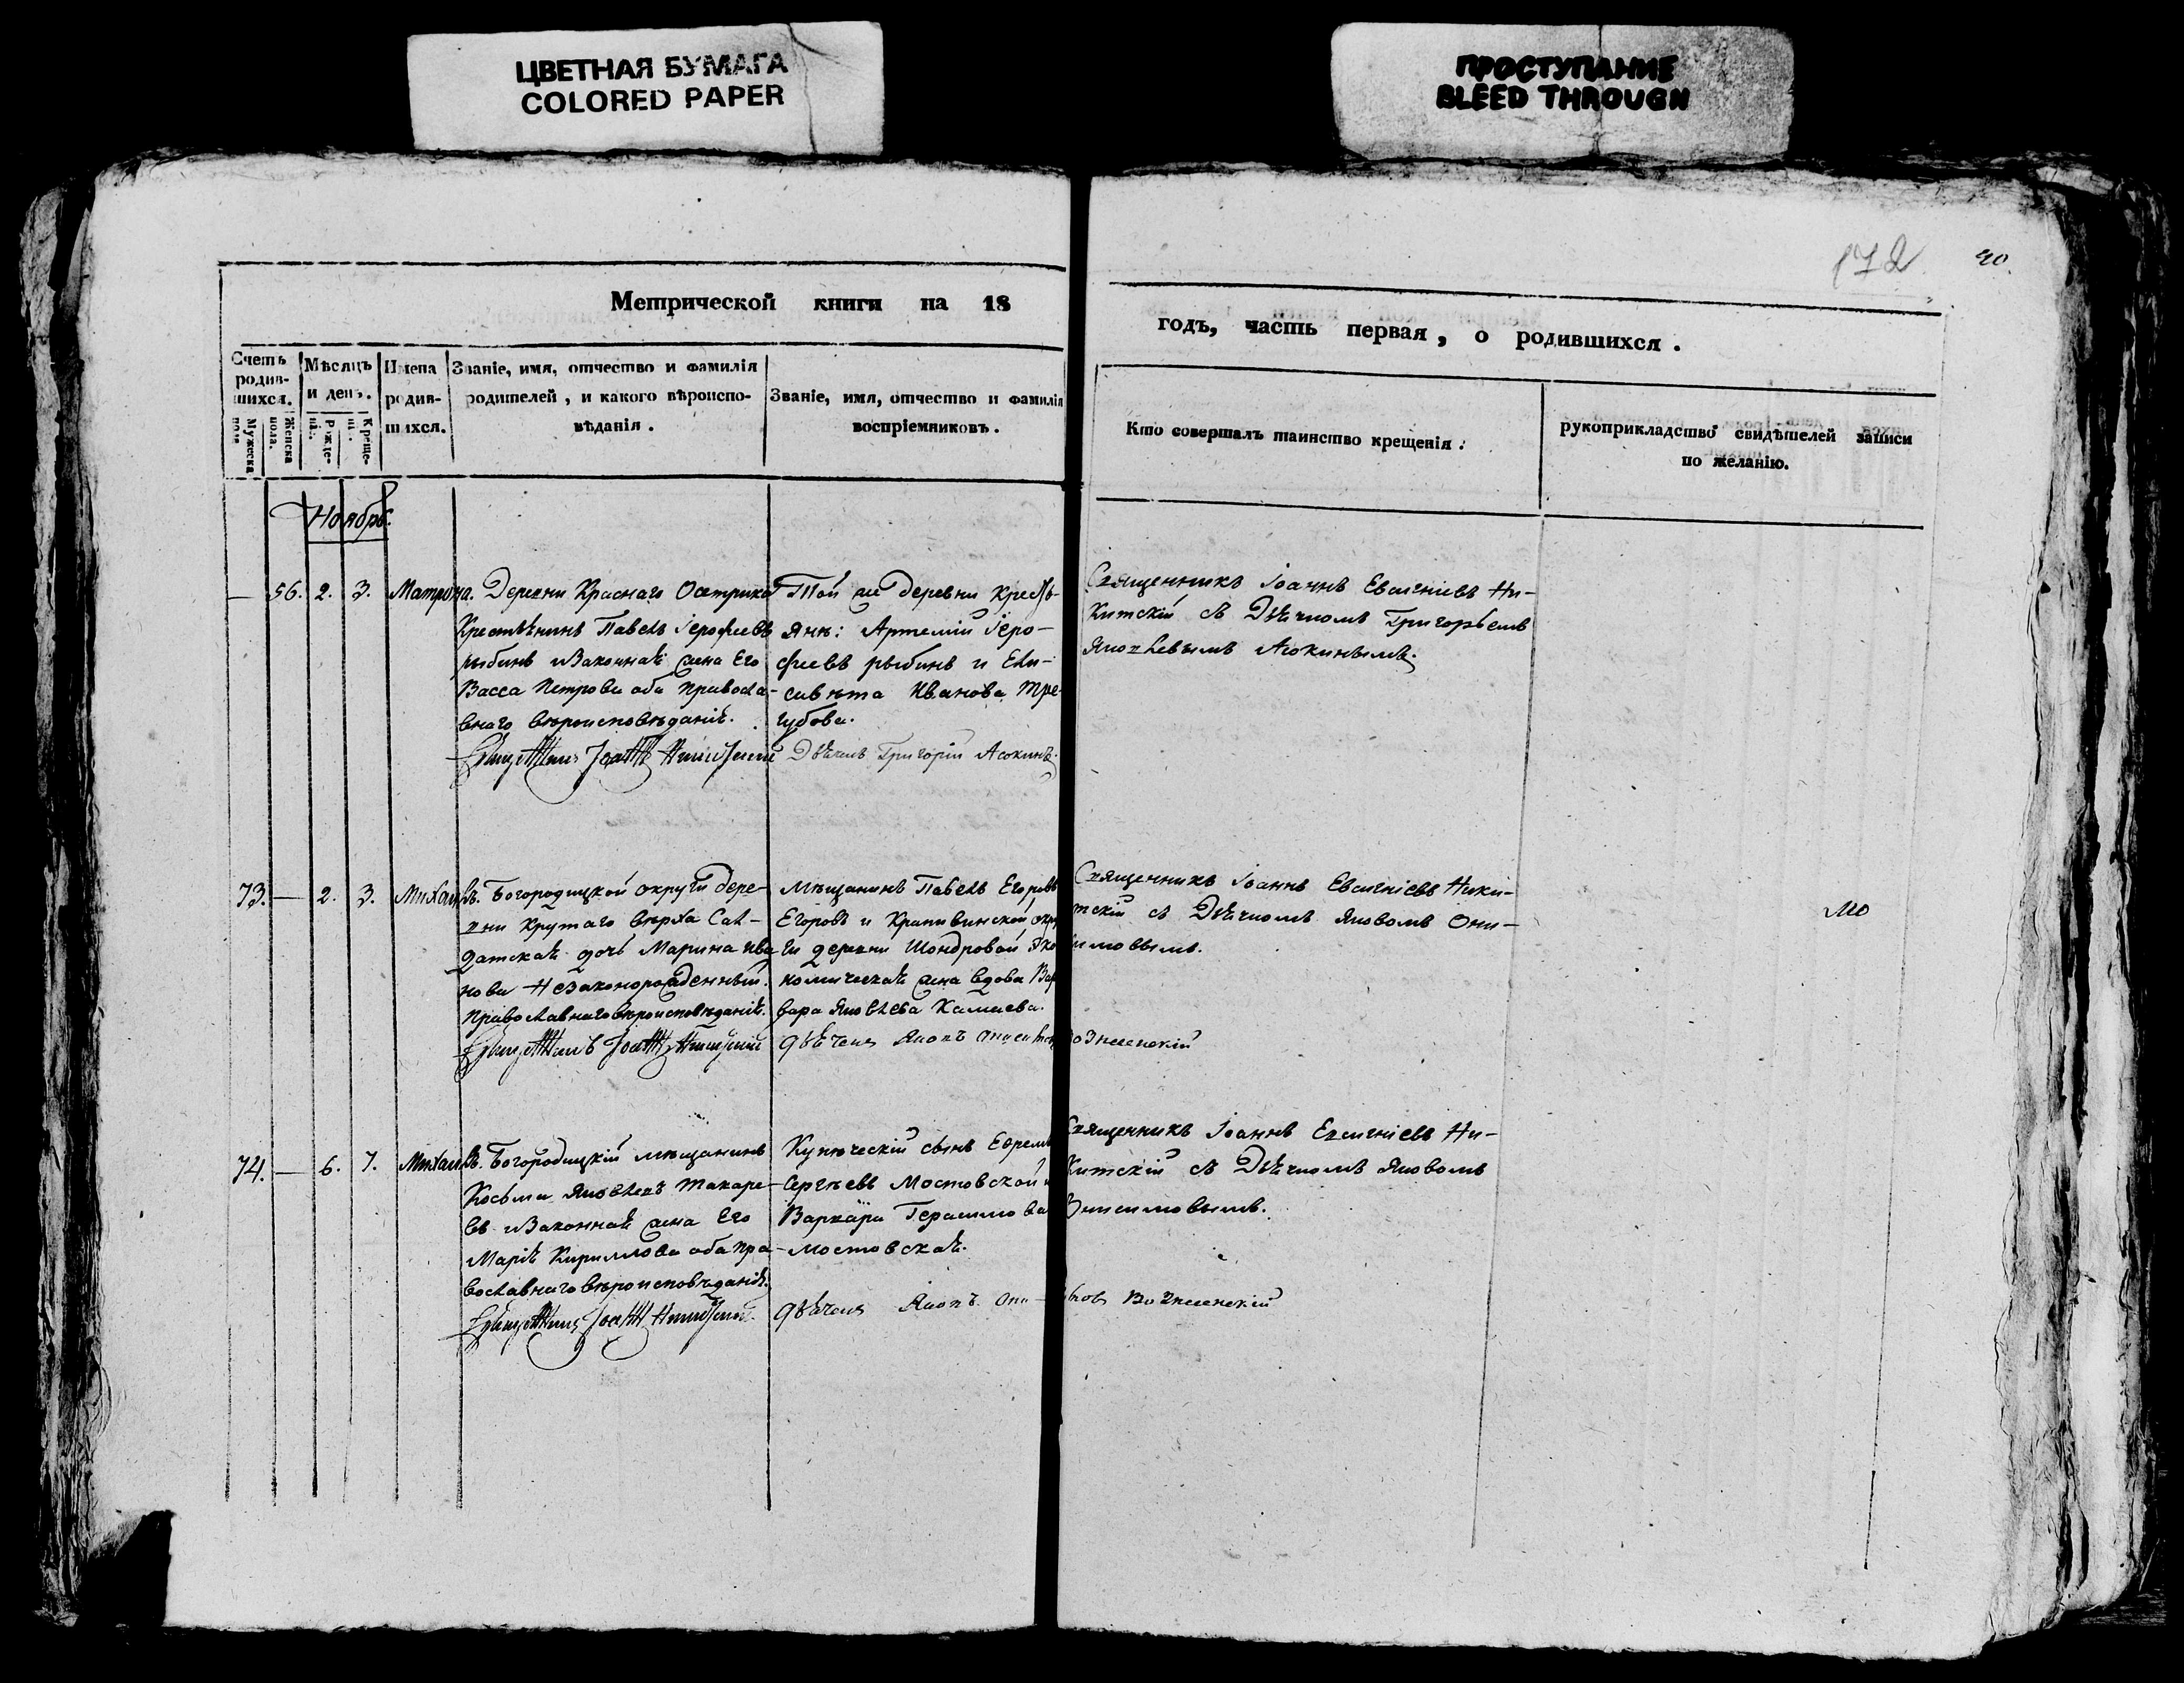 ЦВЕТНАЯ БУМАГА
COLORED PAPER
ПРОСТУПАНИЕ
BLEED THROUGH
172
40.
Метрической книги на 18
годъ, часть первая, о родившихся.
Счетъ родив-шихся.
Мужеска пола
Женска пола.
Мѣсяцъ и день.
Рожде-нія.
Креще-нія.
Имена родив-шихся.
Званіе, имя, отчество и фамилія
родителей, и какого вѣроиспо-
вѣданія.
Званіе, имя, отчество и фамилія
воспріемниковъ.
Кто совершалъ таинство крещенія.
рукоприкладство свидѣтелей записи
по желанію.
Ноябрь.
— 56. 2. 3. Матрона.
Деревни Краснаго Осетрика
Крестьянинъ Павелъ Іерофеевъ
рыбинъ изаконная жена Его
Васса Петрова оба правосла-
внаго вѣроисповѣданія.
Той же деревни Кресть-
янн: Артемій Іеро-
феевъ рыбинъ и Ели-
савѣта Иванова Тре-
губова.
Дьячекъ Григорій Асокинъ.
Священникъ Іоаннъ Евсигніевъ Ни-
китскій съ Дьячкомъ Григорьемъ
Яковлевымъ Асокинымъ.
73. — 2. 3. Михаилъ.
Богородицкой округи дере-
вни Крутаго верха Сал-
датская дочь Марина Ива
нова Незаконорожденный.
православнаго вѣроисповѣданія.
Мѣщанинъ Павелъ Егоровъ
Егоровъ и Крапивинской окру
ги деревни Шондровой Эко
номическая жена вдова Вар
вара Яковлева Камаева.
дьячекъ Яковъ Вознесенскій
Священникъ Іоаннъ Евсигніевъ Ники-
тскій съ Дьячкомъ Яковомъ Они-
симовымъ.
74. — 6. 7. Михаилъ.
Богородицкій мѣщанинъ
Косьма Яковлевъ Токаре-
въ изаконная жена Его
Марія Кириллова оба пра-
вославнаго вѣроисповѣданія.
Купеческій сынъ Ефремъ
Сергѣевъ Мостовской и
Варвара Герасимова
Мостовская.
дьячекъ Яковъ Вознесенскій
Священникъ Іоаннъ Евсигніевъ Ни-
китскій съ Дьячкомъ Яковомъ
Онисимовымъ.